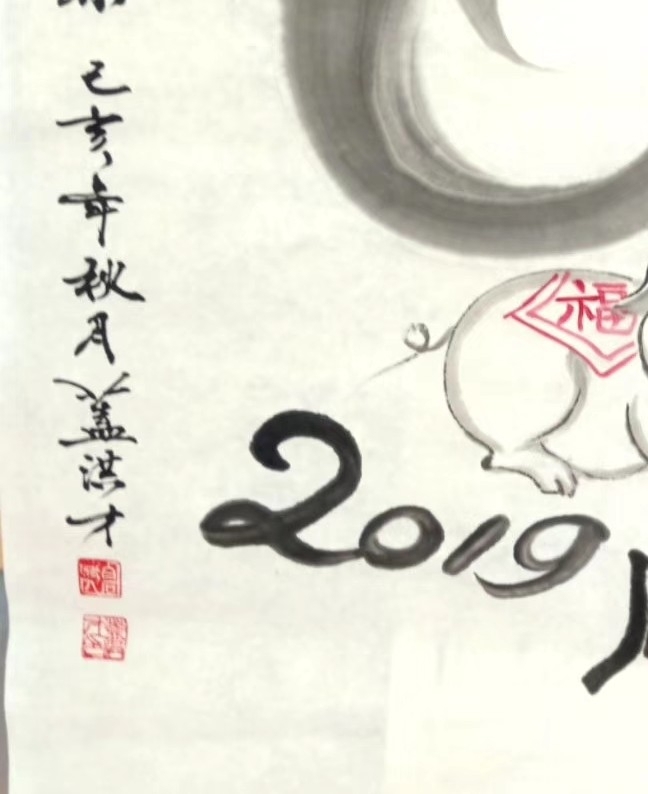 己亥年秋月盖洪才
福
2019